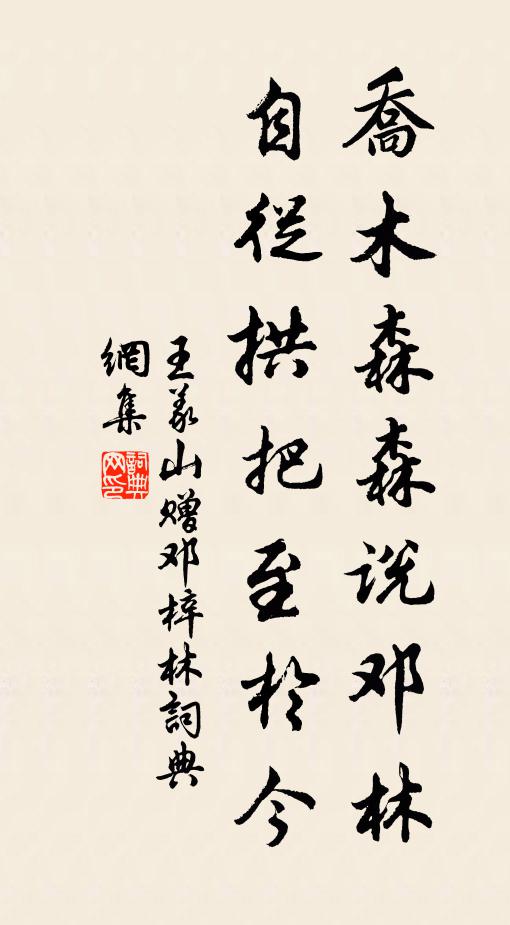 喬木森森説邓林
自從拱把至於今
王义山赠邓梓林詞典
網集
詞典網印